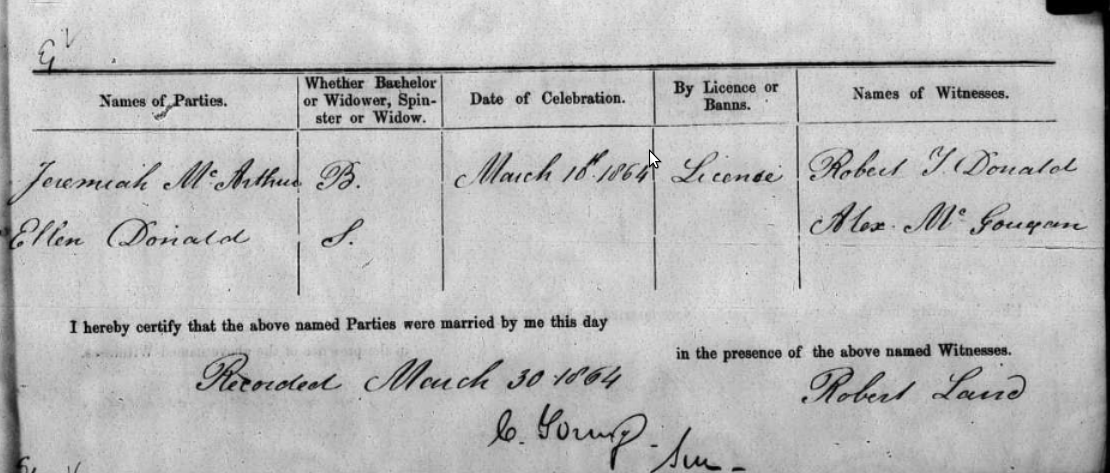 Names of Parties.
Whether Bachelor
or Widower, Spin-
ster or Widow.
Date of Celebration.
By Licence or
Banns.
Names of Witnesses.
Jeremiah Mc Arthur B. March 18th 1864 License Robert T. Donald
Ellen Donald S. Alex. Mc Gougan
I hereby certify that the above named Parties were married by me this day
in the presence of the above named Witnesses.
Recorded March 30 1864 Robert Laird
C. Young